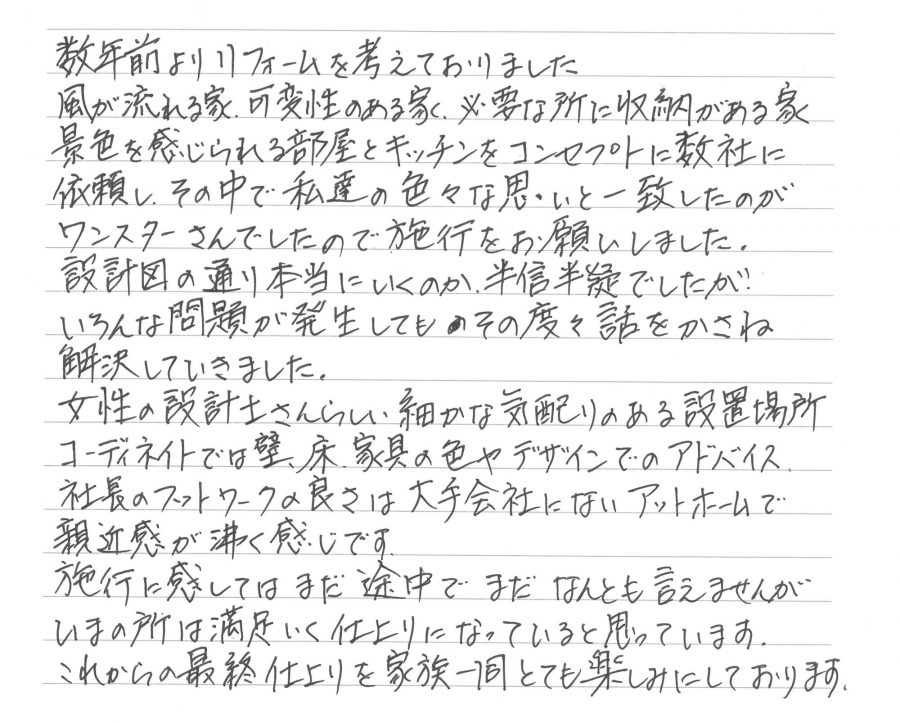 数年前よりリフォームを考えておりました
風が流れる家、可変性のある家、必要な所に収納がある家
景色を感じられる部屋とキッチンをコンセプトに数社に
依頼し、その中で私達の色々な思いと一致したのが
ワンスターさんでしたので施行をお願いしました。
設計図の通り本当にいくのか、半信半疑でしたが
いろんな問題が発生してもその度々話をかさね
解決していきました。
女性の設計士さんらしい細かな気配りのある設置場所
コーディネイトでは壁、床、家具の色やデザインでのアドバイス、
社長のフットワークの良さは大手会社にないアットホームで
親近感が沸く感じです。
施行に感してはまだ途中でまだなんとも言えませんが
いまの所は満足いく仕上りになっていると思っています。
これからの最終仕上りを家族一同とても楽しみにしております。